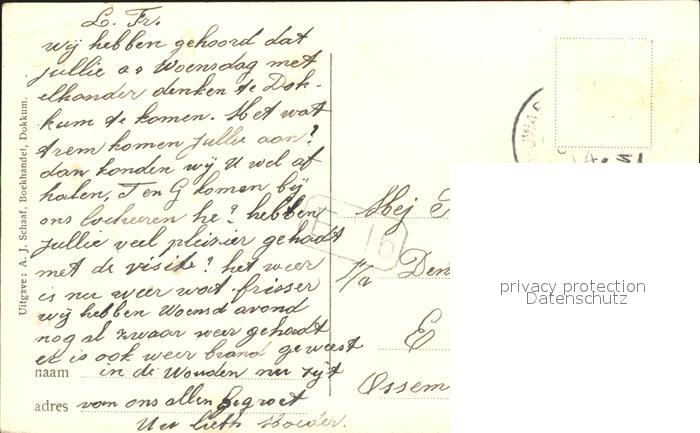 L. Fr.
wij hebben gehoord dat
jullie a s Woensdag met
elkander denken te Dok-
kum te komen. Met wat
trem komen jullie aan?
dan konden wij U wel af
halen, T en G komen bij
ons locheeren he? hebben
jullie veel pleisier gehadt
met de visit? het weer
is nu weer wat frisser
wij hebben Woensd avond
nog al zwaar weer gehadt
er is ook weer brand geweest
naam in de Wouden nu zijt
adres van ons allen gegroet
Uw liefh Moeder.
Uitgave: A. J. Schaaf, Boekhandel, Dokkum.
16
Mej
p/a Den
E
Ossem
privacy protection
Datenschutz